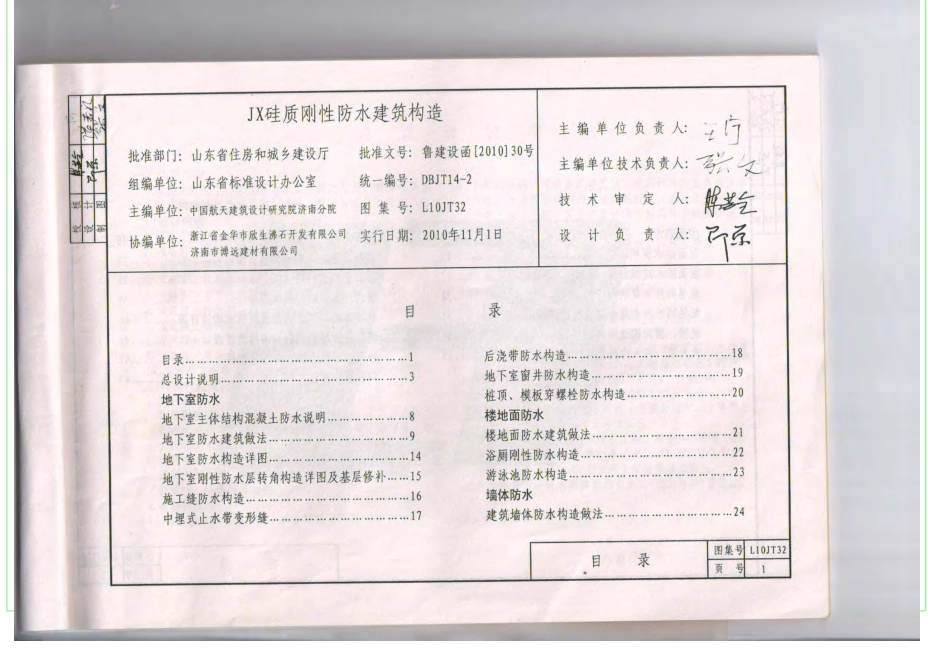 JX硅质刚性防水建筑构造
批准部门：山东省住房和城乡建设厅 批准文号：鲁建设函[2010]30号
组编单位：山东省标准设计办公室 统一编号：DBJT14-2
主编单位：中国航天建筑设计研究院济南分院 图集号：L10JT32
协编单位：浙江省金华市欣生沸石开发有限公司 实行日期：2010年11月1日
济南市博远建材有限公司
主编单位负责人：
主编单位技术负责人：
技术审定人：
设计负责人：
校核
设计
制图
目录
目录……1
总设计说明……3
地下室防水
地下室主体结构混凝土防水说明……8
地下室防水建筑做法……9
地下室防水构造详图……14
地下室刚性防水层转角构造详图及基层修补……15
施工缝防水构造……16
中埋式止水带变形缝……17
后浇带防水构造……18
地下室窗井防水构造……19
桩顶、模板穿螺栓防水构造……20
楼地面防水
楼地面防水建筑做法……21
浴厕刚性防水构造……22
游泳池防水构造……23
墙体防水
建筑墙体防水构造做法……24
目录 图集号 L10JT32
页号 1